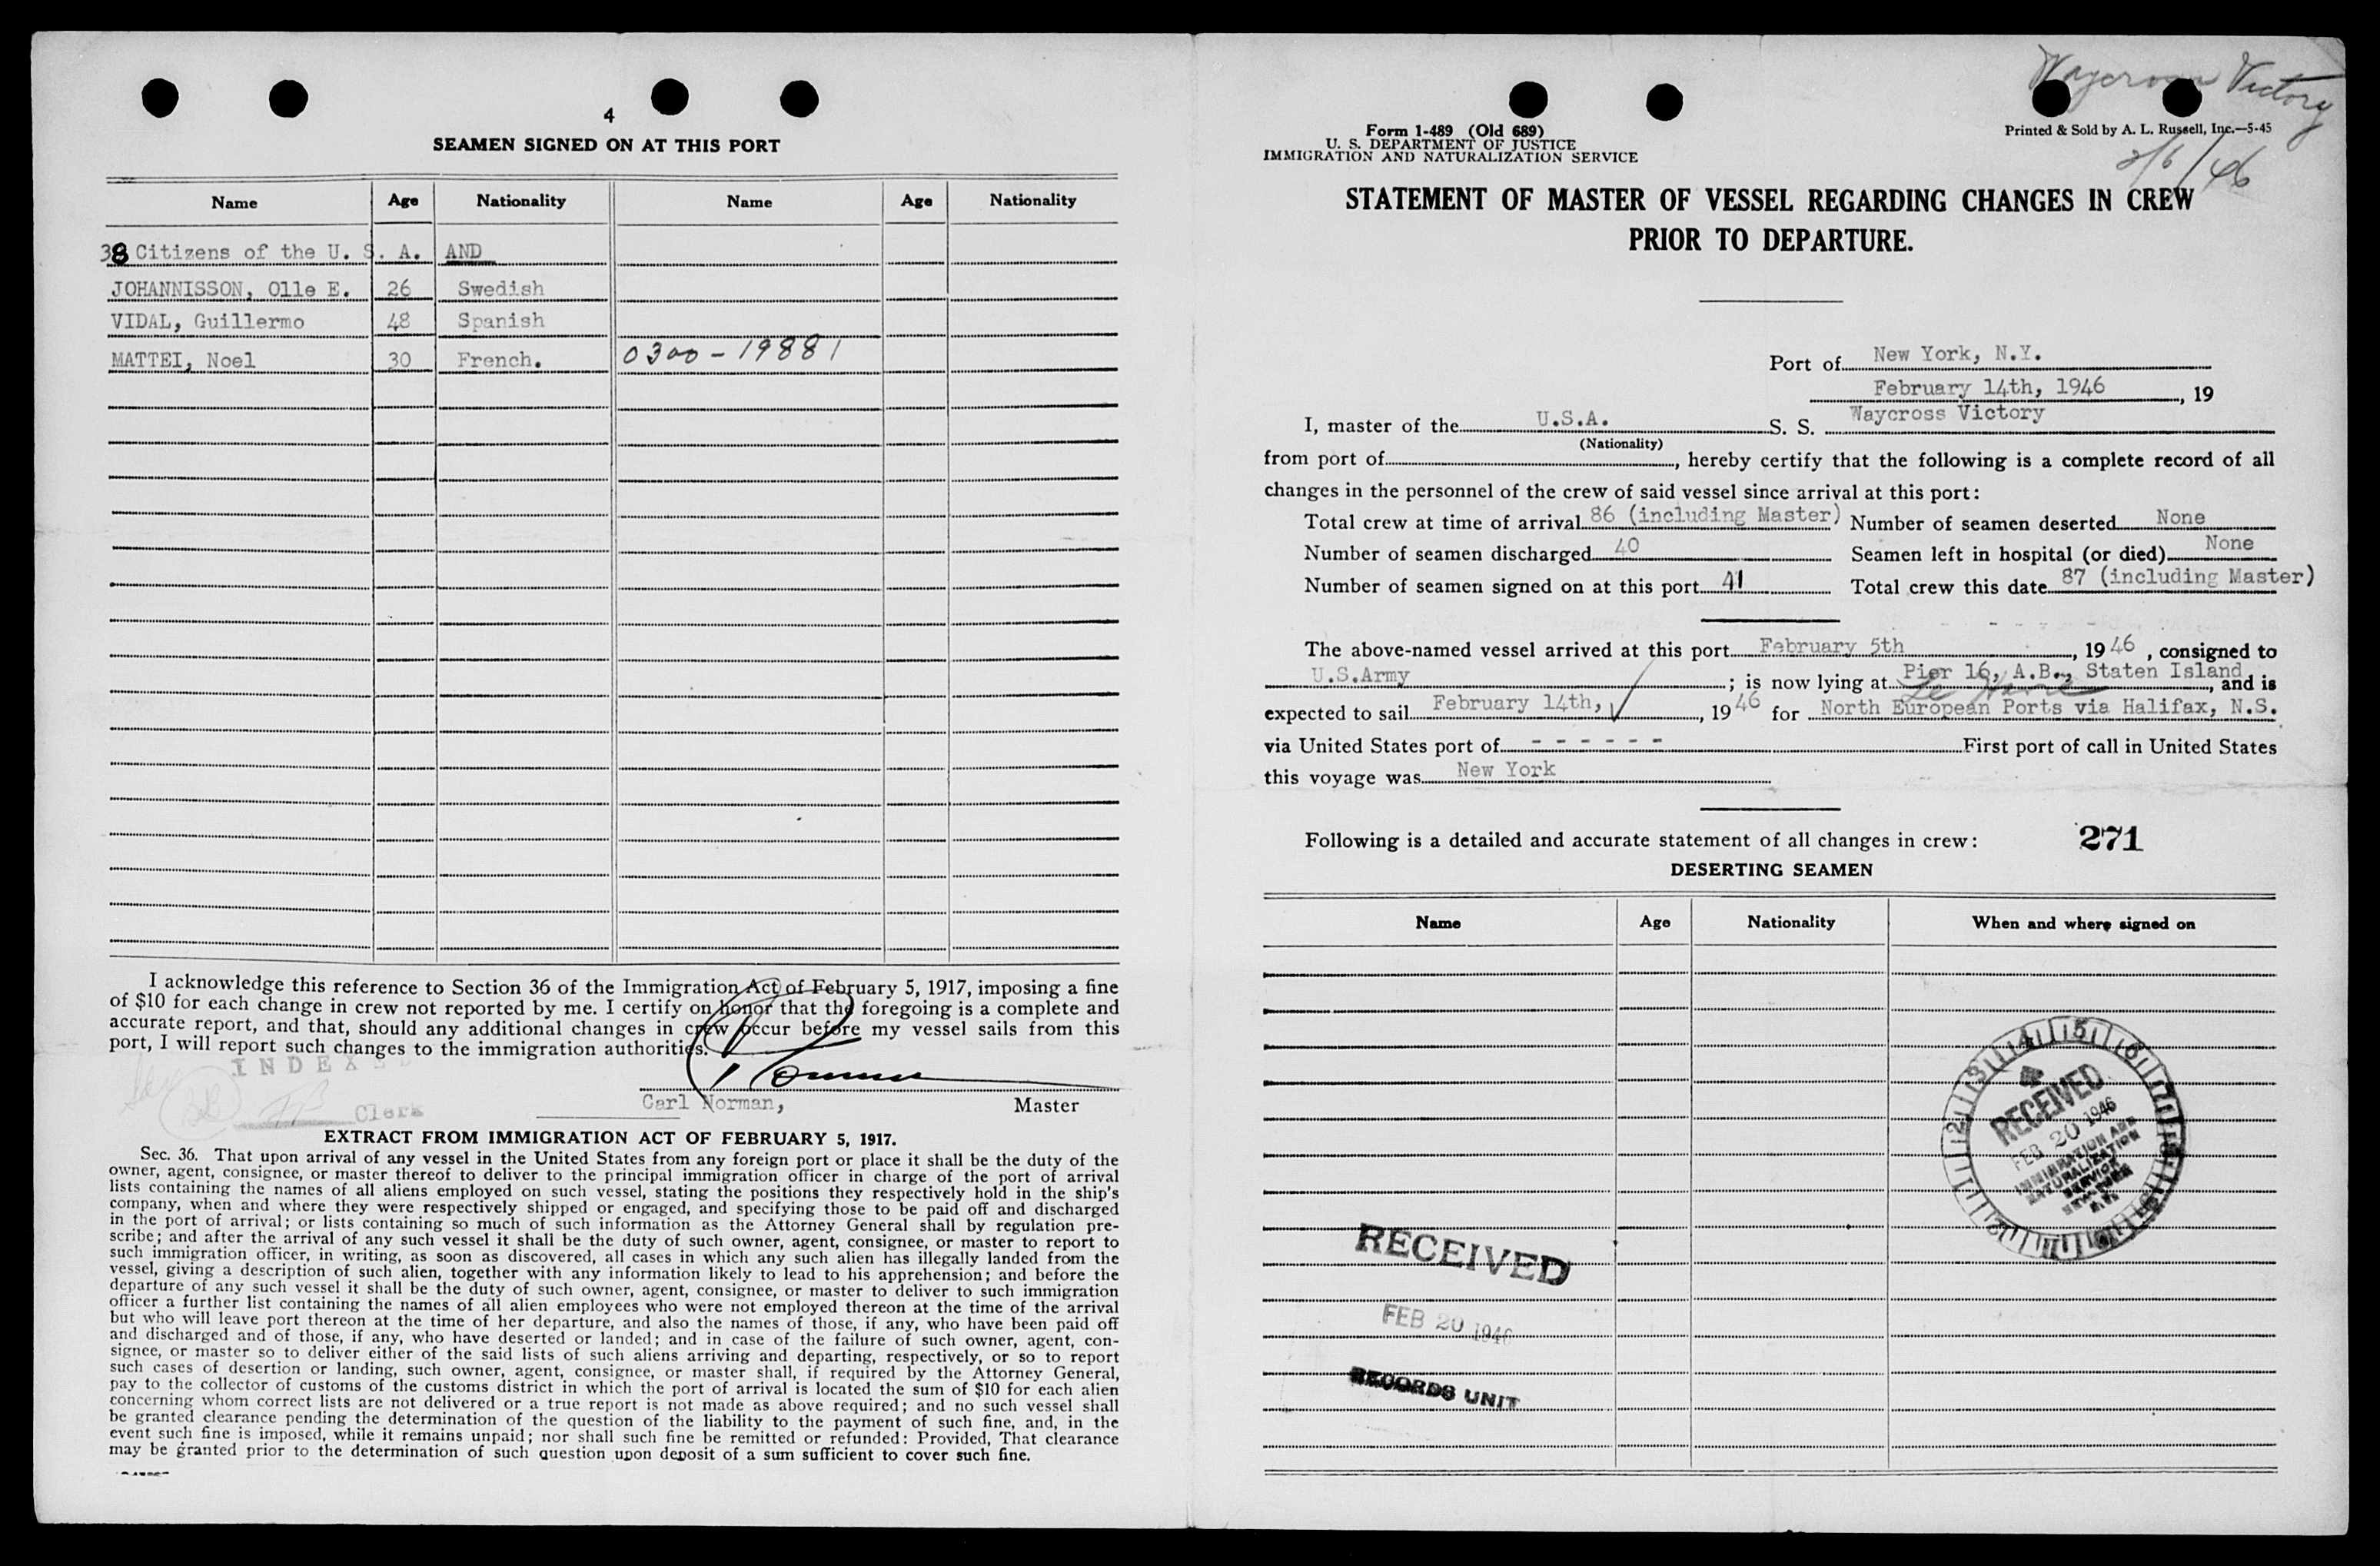 4
SEAMEN SIGNED ON AT THIS PORT
Name Age Nationality Name Age Nationality
38 Citizens of the U. S. A. AND
JOHANNISSON, Olle E. 26 Swedish
VIDAL, Guillermo 48 Spanish
MATTEI, Noel 30 French. 0300-19881
I acknowledge this reference to Section 36 of the Immigration Act of February 5, 1917, imposing a fine
of $10 for each change in crew not reported by me. I certify on honor that the foregoing is a complete and
accurate report, and that, should any additional changes in crew occur before my vessel sails from this
port, I will report such changes to the immigration authorities.
Carl Norman, Master
Clerk
EXTRACT FROM IMMIGRATION ACT OF FEBRUARY 5, 1917.
Sec. 36. That upon arrival of any vessel in the United States from any foreign port or place it shall be the duty of the
owner, agent, consignee, or master thereof to deliver to the principal immigration officer in charge of the port of arrival
lists containing the names of all aliens employed on such vessel, stating the positions they respectively hold in the ship's
company, when and where they were respectively shipped or engaged, and specifying those to be paid off and discharged
in the port of arrival; or lists containing so much of such information as the Attorney General shall by regulation pre-
scribe; and after the arrival of any such vessel it shall be the duty of such owner, agent, consignee, or master to report to
such immigration officer, in writing, as soon as discovered, all cases in which any such alien has illegally landed from the
vessel, giving a description of such alien, together with any information likely to lead to his apprehension; and before the
departure of any such vessel it shall be the duty of such owner, agent, consignee, or master to deliver to such immigration
officer a further list containing the names of all alien employees who were not employed thereon at the time of the arrival
but who will leave port thereon at the time of her departure, and also the names of those, if any, who have been paid off
and discharged and of those, if any, who have deserted or landed; and in case of the failure of such owner, agent, con-
signee, or master so to deliver either of the said lists of such aliens arriving and departing, respectively, or so to report
such cases of desertion or landing, such owner, agent, consignee, or master shall, if required by the Attorney General,
pay to the collector of customs of the customs district in which the port of arrival is located the sum of $10 for each alien
concerning whom correct lists are not delivered or a true report is not made as above required; and no such vessel shall
be granted clearance pending the determination of the question of the liability to the payment of such fine, and, in the
event such fine is imposed, while it remains unpaid; nor shall such fine be remitted or refunded: Provided, That clearance
may be granted prior to the determination of such question upon deposit of a sum sufficient to cover such fine.
Waycross Victory
2/6/46
Form 1-489 (Old 689)
U. S. DEPARTMENT OF JUSTICE
IMMIGRATION AND NATURALIZATION SERVICE
Printed & Sold by A. L. Russell, Inc.—5-45
STATEMENT OF MASTER OF VESSEL REGARDING CHANGES IN CREW
PRIOR TO DEPARTURE.
Port of New York, N.Y.
February 14th, 1946, 19
I, master of the U.S.A. S. S. Waycross Victory
(Nationality)
from port of , hereby certify that the following is a complete record of all
changes in the personnel of the crew of said vessel since arrival at this port:
Total crew at time of arrival 86 (including Master) Number of seamen deserted None
Number of seamen discharged 40 Seamen left in hospital (or died) None
Number of seamen signed on at this port 41 Total crew this date 87 (including Master)
The above-named vessel arrived at this port February 5th, 1946, consigned to
U.S.Army ; is now lying at Pier 16, A.B., Staten Island, and is
Le Havre
expected to sail February 14th, 1946 for North European Ports via Halifax, N.S.
via United States port of - - - - - - First port of call in United States
this voyage was New York
Following is a detailed and accurate statement of all changes in crew: 271
DESERTING SEAMEN
Name Age Nationality When and where signed on
RECEIVED
FEB 20 1946
IMMIGRATION AND
NATURALIZATION
SERVICE
RECEIVED
FEB 20 1946
RECORDS UNIT